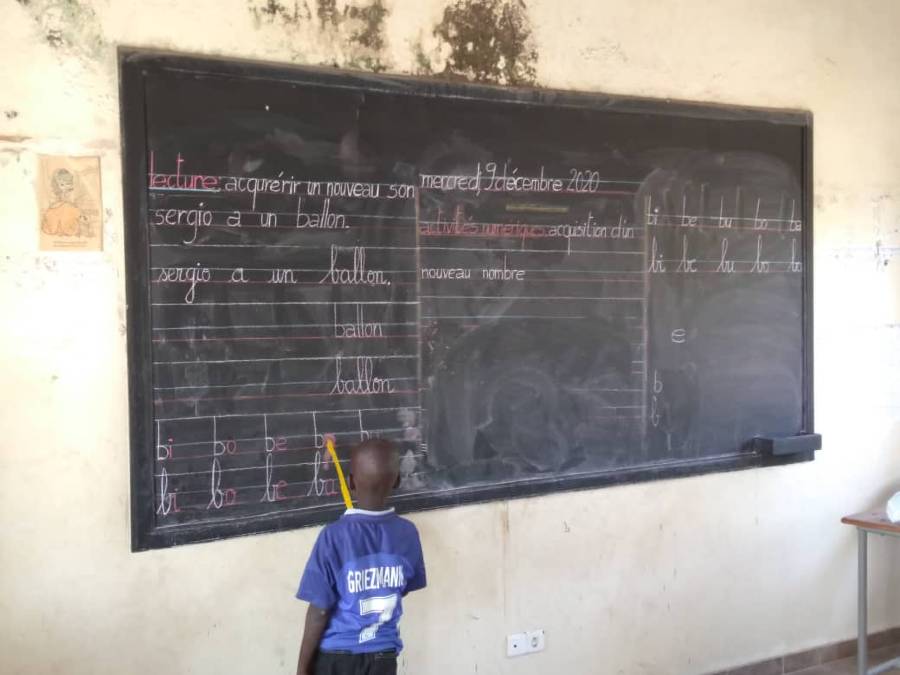 lecture: acqurérir un nouveau son
sergio a un ballon.
sergio a un ballon.
ballon
ballon
bi bo be ba
bi bo be ba
mercredi 9 décembre 2020
activités numériques: acquisition d'un
nouveau nombre
bi be bu bo ba
bi be bu bo ba
e
b
GRIEZMANN
7